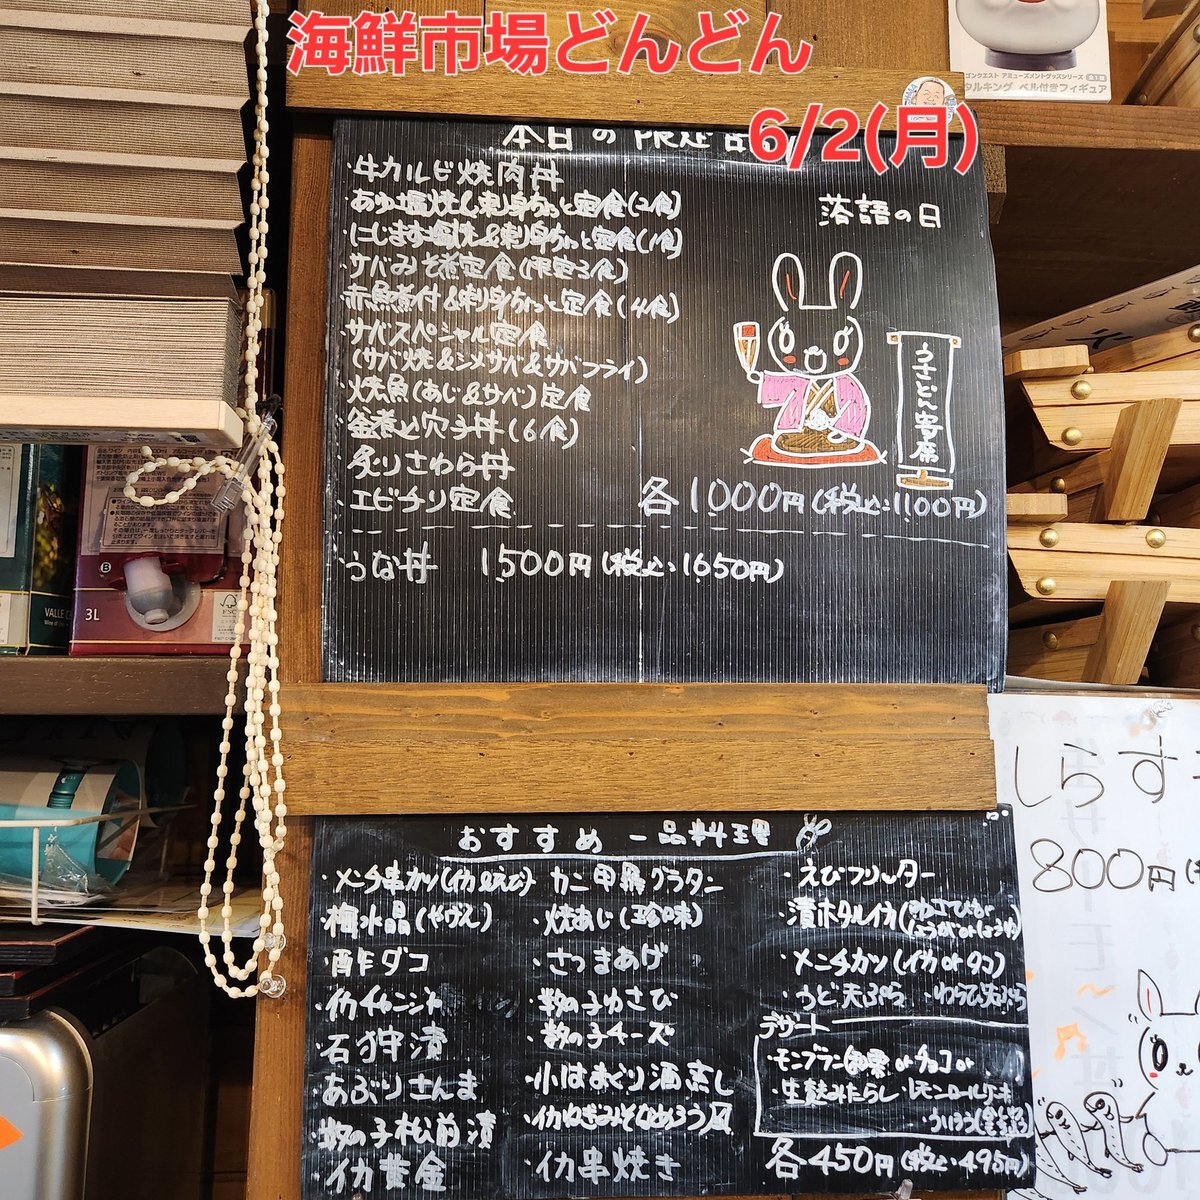 海鮮市場どんどん
6/2(月)
本日の限定
・牛カルビ焼肉丼
・あゆ塩焼&刺身ちょっと定食(2食)
・にじます塩焼&刺身ちょっと定食(1食)
・サバみそ煮定食(限定3食)
・赤魚煮付&刺身ちょっと定食(4食)
・サバスペシャル定食
(サバ焼&シメサバ&サバフライ)
・焼魚(あじ&サバ)定食
・釜煮上穴子丼(6食)
・炙りさわら丼
・エビチリ定食
各1000円(税込1100円)
落語の日
うさどん寄席
・うな丼 1,500円(税込1650円)
おすすめ一品料理
・メンチ串カツ(イカ&えび)
・梅水晶(やげん)
・酢ダコ
・イカチャンジャ
・石狩漬
・あぶりさんま
・数の子松前漬
・イカ黄金
・カニ甲羅グラタン
・焼あじ(珍味)
・さつまあげ
・数の子わさび
・数の子チーズ
・小はまぐり酒蒸し
・イカねぎみそなめろう風
・イカ串焼き
・えびフリッター
・漬ホタルイカ(わさび or しょうが or しょうゆ)
・メンチカツ(イカ or タコ)
・うど天ぷら ・わらび天ぷら
デザート
・モンブラン和栗 or チョコ or
・生麩みたらし ・レモンロールケーキ
・ういろう
各450円(税込495円)
しらす
800円
VALLE C
3L
FSC
B
タルキング ベル付きフィギュア